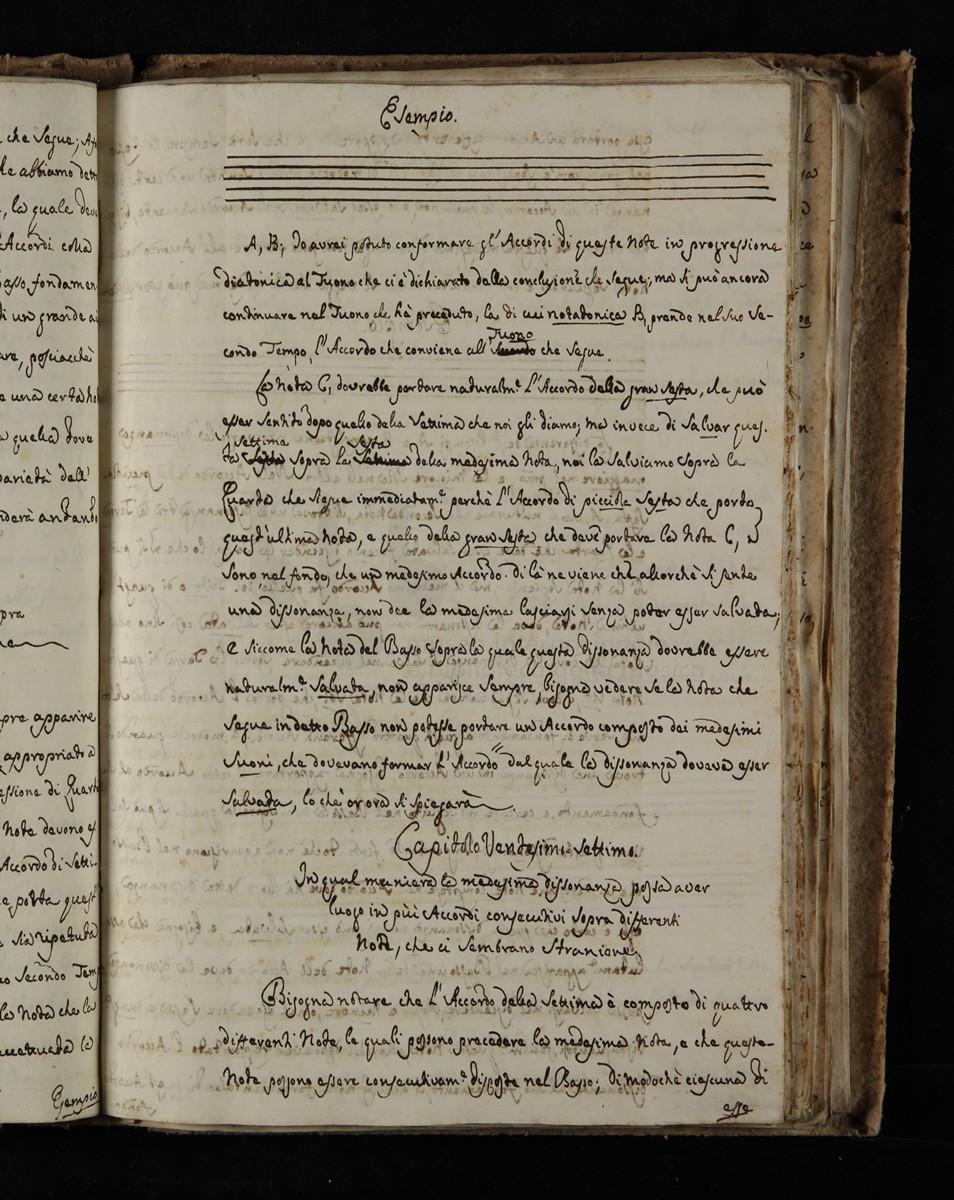 Esempio.
A, B, Io avrei potuto conformare gl'Accordi di queste Note in progressione
diatonica al Tuono che ci è dichiarato dalla conclusione che segue; ma si può ancora
continuare nel Tuono che hà preceduto, la di cui notatonica B, prende nel suo Se-
condo Tempo, l'Accordo che conviene all' Tuono che segue.
La Nota C, dovrebbe portare naturalm.e l'Accordo della gran sesta, che può
esser sentito dopo quello della Settima che noi gli diamo; ma invece di Salvar ques-
ta Settima sopra la Sesta della medesima Nota, noi la salviamo sopra la
Quarta che segue immediatam.e perchè l'Accordo di picciola Sesta che porta
quest'ultima Nota, e quello della gran sesta che deve portare la Nota C,
sono, nel fondo, che un medesimo Accordo. di là ne viene che allorchè si sente
una dissonanza, non dee la medesima lasciarsi senza poter esser salvata;
e siccome la Nota del Basso sopra la quale questa dissonanza dovrebbe essere
naturalm.e salvata, non apparisce sempre, bisogna vedere se la Nota che
segue in detto Basso non potesse portare un Accordo composto dei medesimi
Suoni, che dovevano formar l'Accordo dal quale la dissonanza doveva esser
salvata, lo che or ora si spiegarà.
Capitolo Ventesimo Settimo.
In qual maniera la medesima dissonanza possa aver
luogo in più Accordi consecutivi sopra differenti
Note, che ci sembrano straniere.
Bisogna notare che l'Accordo della Settima è composto di quattro
differenti Note, le quali possono precedere la medesima Nota, e che queste
Note possono essere consecutivam.e disposte nel Basso; di modochè ciascuna di
esse
che segue;
le abbiamo
, la quale
Accordi colla
Basso fondamen
di un grande
are, posciacchè
e una certa
a quella dove
varietà dell'
nderà
pra
pre apparire
appropriato a
essione di Quart
Note devono
Accordo di Setti-
e porta quest
sia ripetuta
uo Secondo
la Nota che la
la
Esempio